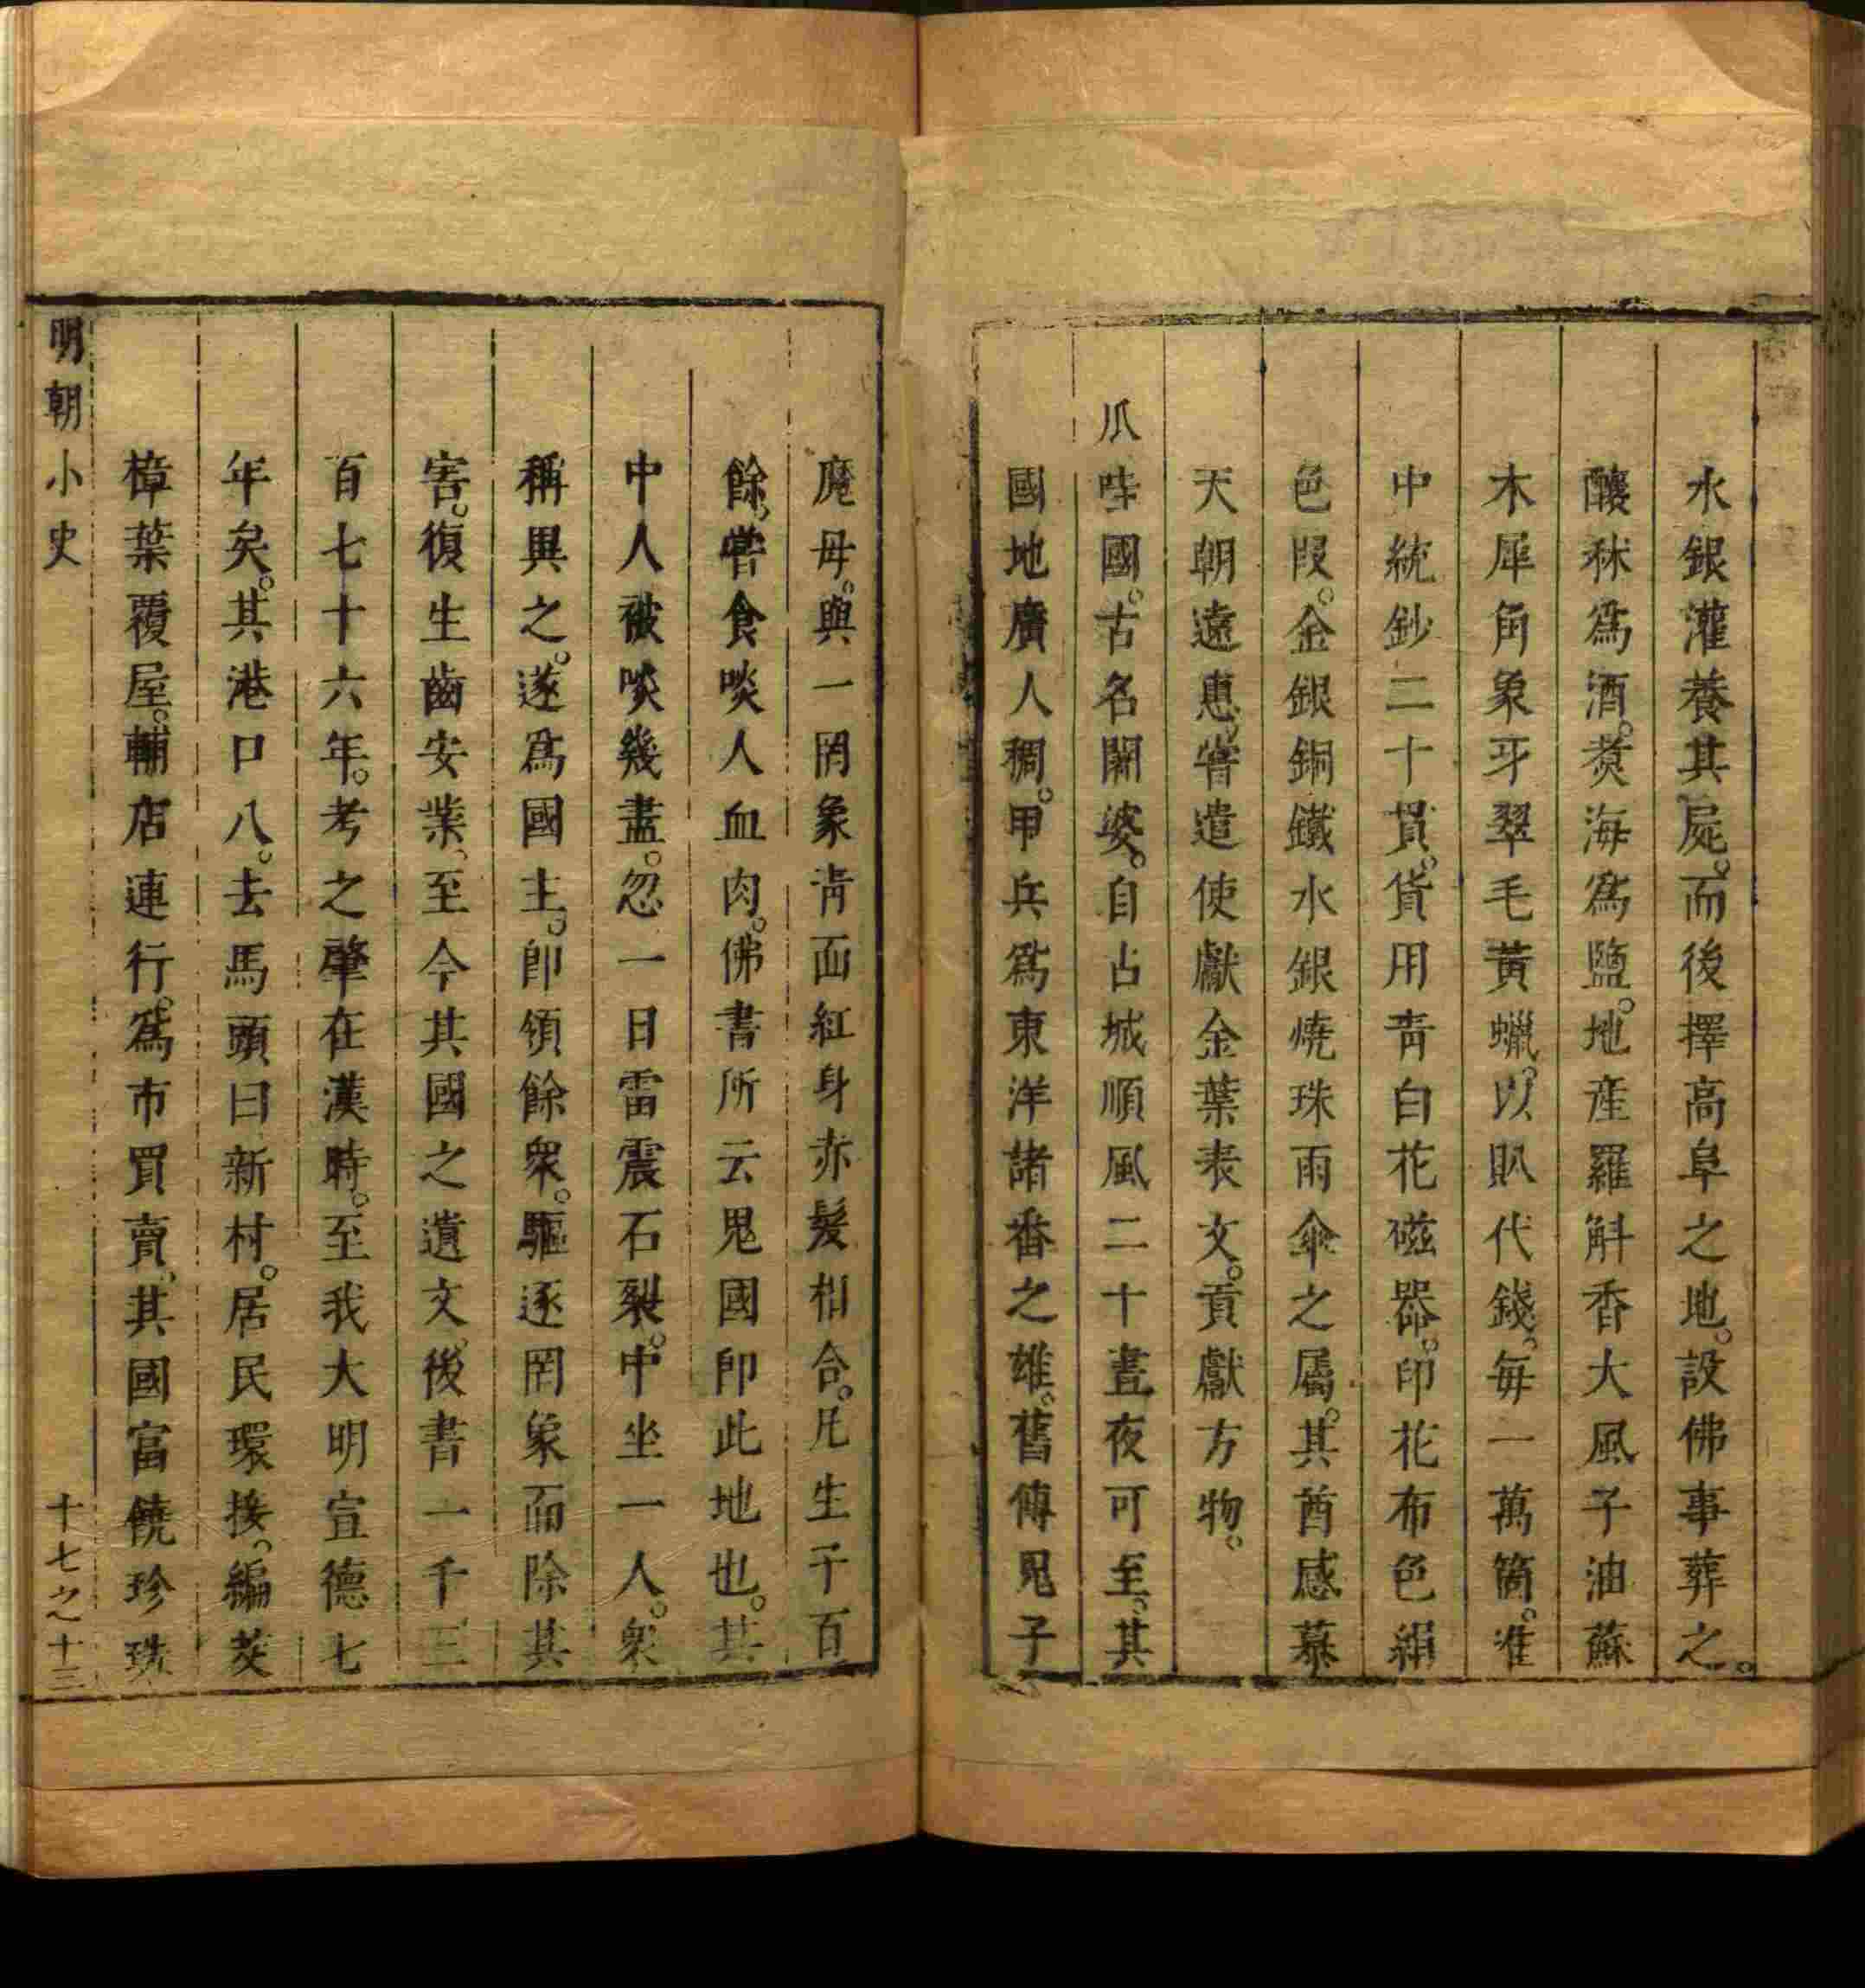 水銀灌養其屍。而後擇高阜之地。設佛事葬之。
釀秫爲酒。煑海爲鹽。地產羅斛香大風子油蘇
木犀角象牙翠毛黃蠟。以𧴩代錢。每一萬箇。准
中統鈔二十貫。貨用青白花磁器。印花布色絹
色段。金銀銅鐵水銀燒珠雨傘之屬。其酋感慕
天朝遠惠。嘗遣使獻金葉表文。貢獻方物。
爪哇國。古名闍婆。自占城順風二十晝夜可至。其
國地廣人稠。甲兵爲東洋諸番之雄。舊傳鬼子
魔母。與一罔象青面紅身赤髮相合。凡生子百
餘。嘗食啖人血肉。佛書所云鬼國卽此地也。其
中人被啖幾盡。忽一日雷震石裂。中坐一人。衆
稱異之。遂爲國主。卽領餘衆。驅逐罔象而除其
害。復生齒安業。至今其國之遺文。後書一千三
百七十六年。考之肇在漢時。至我大明宣德七
年矣。其港口入。去馬頭曰新村。居民環接。編茭
樟葉覆屋。輔店連行。爲市買賣。其國富饒珍珠
明朝小史
十七之十三